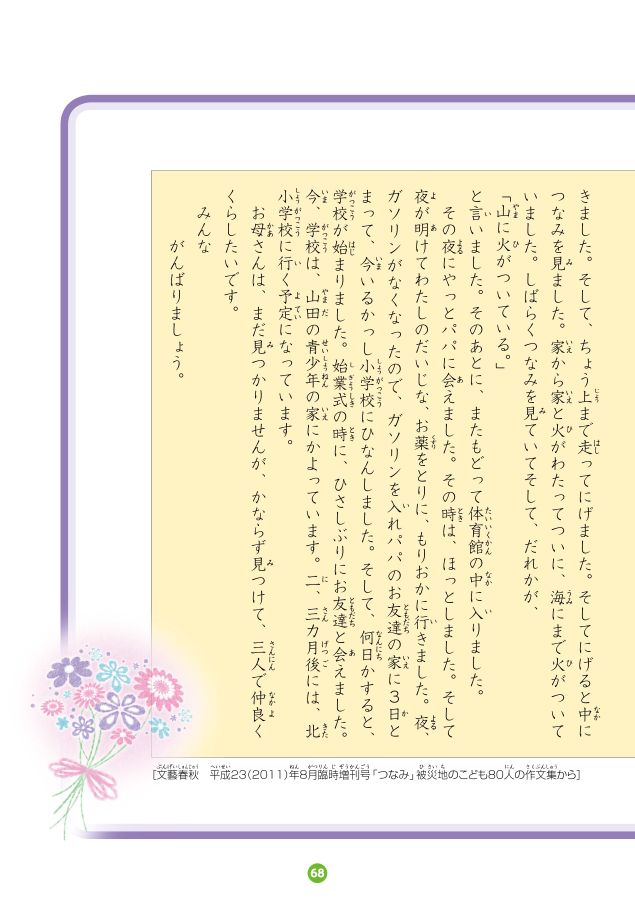 きました。そして、ちょう上まで走ってにげました。そしてにげると中に
つなみを見ました。家から家と火がわたってついに、海にまで火がついて
いました。しばらくつなみを見ていてそして、だれかが、
「山に火がついている。」
と言いました。そのあとに、またもどって体育館の中に入りました。
その夜にやっとパパに会えました。その時は、ほっとしました。そして
夜が明けてわたしのだいじな、お薬をとりに、もりおかに行きました。夜、
ガソリンがなくなったので、ガソリンを入れパパのお友達の家に3日と
まって、今いるかっし小学校にひなんしました。そして、何日かすると、
学校が始まりました。始業式の時に、ひさしぶりにお友達と会えました。
今、学校は、山田の青少年の家にかよっています。二、三カ月後には、北
小学校に行く予定になっています。
お母さんは、まだ見つかりませんが、かならず見つけて、三人で仲良く
くらしたいです。
みんな
がんばりましょう。
[文藝春秋 平成23(2011)年8月臨時増刊号「つなみ」被災地のこども80人の作文集から]
68